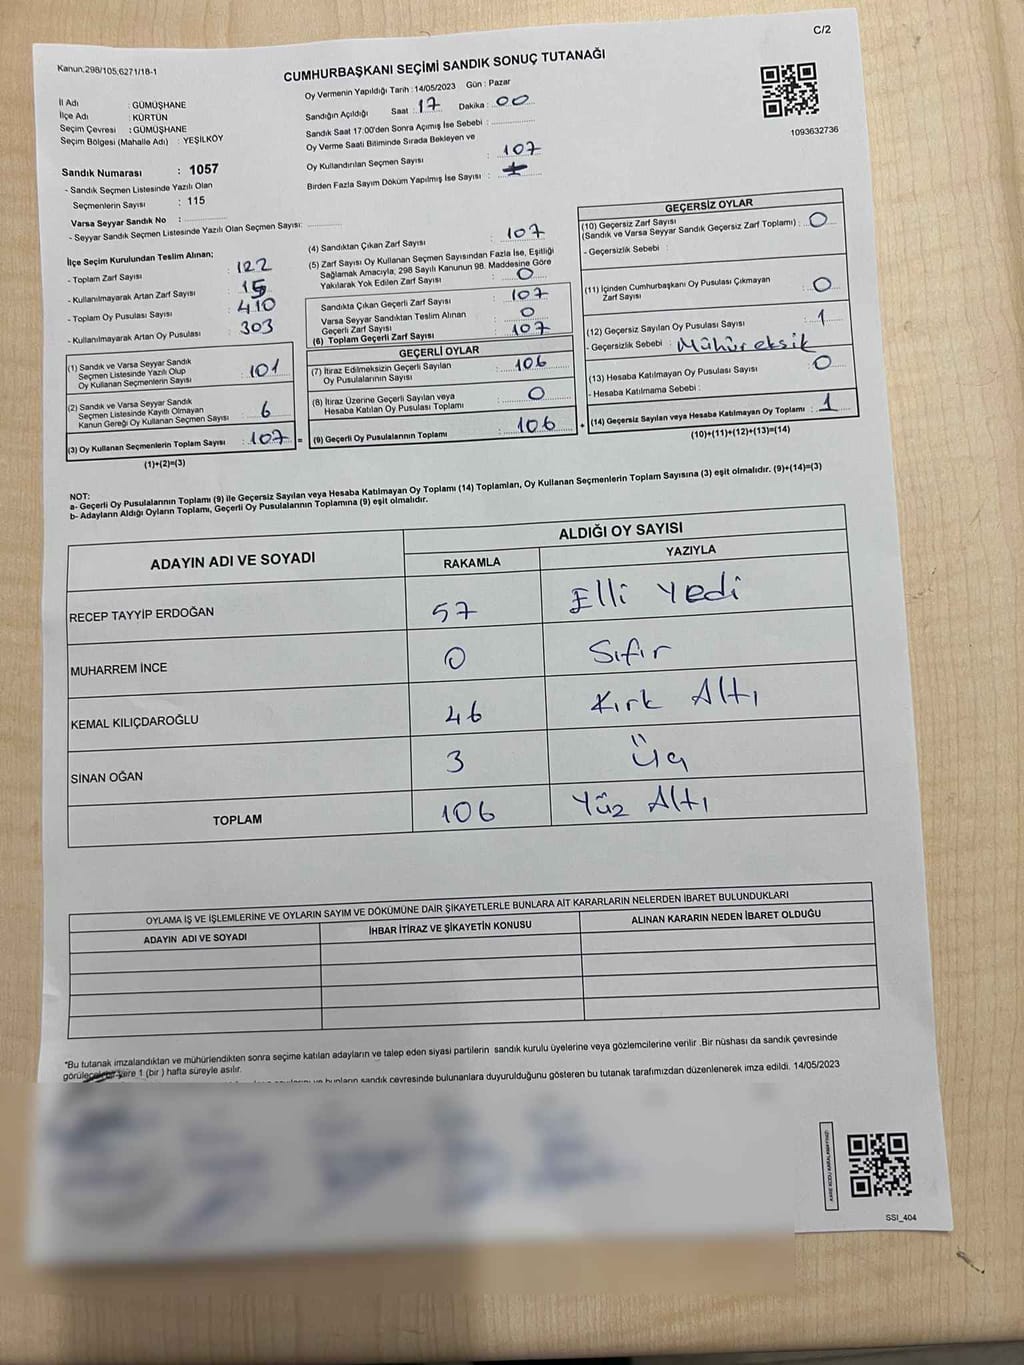 C/2
Kanun,298/105,6271/18-1
CUMHURBAŞKANI SEÇİMİ SANDIK SONUÇ TUTANAĞI
İl Adı : GÜMÜŞHANE
İlçe Adı : KÜRTÜN
Seçim Çevresi : GÜMÜŞHANE
Seçim Bölgesi (Mahalle Adı) : YEŞİLKÖY
Sandık Numarası : 1057
- Sandık Seçmen Listesinde Yazılı Olan
Seçmenlerin Sayısı : 115
Varsa Seyyar Sandık No :
- Seyyar Sandık Seçmen Listesinde Yazılı Olan Seçmen Sayısı:
Oy Vermenin Yapıldığı Tarih :14/05/2023 Gün : Pazar
Sandığın Açıldığı Saat : 17 Dakika : 00
Sandık Saat 17:00'den Sonra Açımış İse Sebebi :
Oy Verme Saati Bitiminde Sırada Bekleyen ve
Oy Kullandırılan Seçmen Sayısı : 107
Birden Fazla Sayım Döküm Yapılmış İse Sayısı :
1093632736
İlçe Seçim Kurulundan Teslim Alınan;
- Toplam Zarf Sayısı : 122
- Kullanılmayarak Artan Zarf Sayısı : 15
- Toplam Oy Pusulası Sayısı : 410
- Kullanılmayarak Artan Oy Pusulası : 303
(1) Sandık ve Varsa Seyyar Sandık
Seçmen Listesinde Yazılı Olup
Oy Kullanan Seçmenlerin Sayısı : 101
(2) Sandık ve Varsa Seyyar Sandık
Seçmen Listesinde Kayıtlı Olmayan
Kanun Gereği Oy Kullanan Seçmen Sayısı : 6
(3) Oy Kullanan Seçmenlerin Toplam Sayısı : 107 =
(1)+(2)=(3)
(4) Sandıktan Çıkan Zarf Sayısı : 107
(5) Zarf Sayısı Oy Kullanan Seçmen Sayısından Fazla İse, Eşitliği
Sağlamak Amacıyla, 298 Sayılı Kanunun 98. Maddesine Göre
Yakılarak Yok Edilen Zarf Sayısı : 0
Sandıkta Çıkan Geçerli Zarf Sayısı : 107
Varsa Seyyar Sandıktan Teslim Alınan
Geçerli Zarf Sayısı : 0
(6) Toplam Geçerli Zarf Sayısı : 107
GEÇERLİ OYLAR
(7) İtiraz Edilmeksizin Geçerli Sayılan
Oy Pusulalarının Sayısı : 106
(8) İtiraz Üzerine Geçerli Sayılan veya
Hesaba Katılan Oy Pusulası Toplamı : 0
(9) Geçerli Oy Pusulalarının Toplamı : 106 +
GEÇERSİZ OYLAR
(10) Geçersiz Zarf Sayısı
(Sandık ve Varsa Seyyar Sandık Geçersiz Zarf Toplamı) : 0
- Geçersizlik Sebebi :
(11) İçinden Cumhurbaşkanı Oy Pusulası Çıkmayan
Zarf Sayısı : 0
(12) Geçersiz Sayılan Oy Pusulası Sayısı : 1
- Geçersizlik Sebebi : Mühür eksik
(13) Hesaba Katılmayan Oy Pusulası Sayısı : 0
- Hesaba Katılmama Sebebi :
(14) Geçersiz Sayılan veya Hesaba Katılmayan Oy Toplamı : 1
(10)+(11)+(12)+(13)=(14)
NOT:
a- Geçerli Oy Pusulalarının Toplamı (9) ile Geçersiz Sayılan veya Hesaba Katılmayan Oy Toplamı (14) Toplamları, Oy Kullanan Seçmenlerin Toplam Sayısına (3) eşit olmalıdır. (9)+(14)=(3)
b- Adayların Aldığı Oyların Toplamı, Geçerli Oy Pusulalarının Toplamına (9) eşit olmalıdır.
ADAYIN ADI VE SOYADI
ALDIĞI OY SAYISI
RAKAMLA YAZIYLA
RECEP TAYYİP ERDOĞAN 57 Elli Yedi
MUHARREM İNCE 0 Sıfır
KEMAL KILIÇDAROĞLU 46 Kırk Altı
SİNAN OĞAN 3 Üç
TOPLAM 106 Yüz Altı
OYLAMA İŞ VE İŞLEMLERİNE VE OYLARIN SAYIM VE DÖKÜMÜNE DAİR ŞİKAYETLERLE BUNLARA AİT KARARLARIN NELERDEN İBARET BULUNDUKLARI
ADAYIN ADI VE SOYADI İHBAR İTİRAZ VE ŞİKAYETİN KONUSU ALINAN KARARIN NEDEN İBARET OLDUĞU
*Bu tutanak imzalandıktan ve mühürlendikten sonra seçime katılan adayların ve talep eden siyasi partilerin sandık kurulu üyelerine veya gözlemcilerine verilir .Bir nüshası da sandık çevresinde
görülecek bir yere 1 (bir ) hafta süreyle asılır.
ve bunların sandık çevresinde bulunanlara duyurulduğunu gösteren bu tutanak tarafımızdan düzenlenerek imza edildi. 14/05/2023
SSI_404